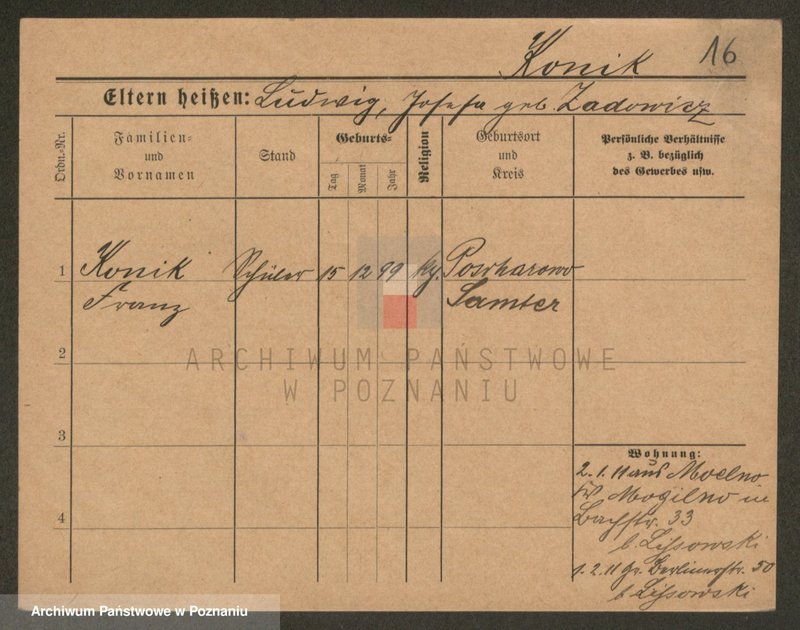 Konik 16
Eltern heißen: Ludwig, Josefa geb. Zadowicz
Ordn.-Nr.
Familien-
und
Vornamen
Stand
Geburts-
Tag
Monat
Jahr
Religion
Geburtsort
und
Kreis
Persönliche Verhältnisse
z. B. bezüglich
des Gewerbes usw.
1 Konik Schüler 15 12 99 kg.
Franz Samter
2
ARCHIWUM PAŃSTWOWE
W POZNANIU
3
4
Wohnung:
2.1.11 aus
Mogilno in
Bachstr. 33
b. Lissowski
1.2.11 Gr. Berlinerstr. 50
b. Lissowski
Archiwum Państwowe w Poznaniu